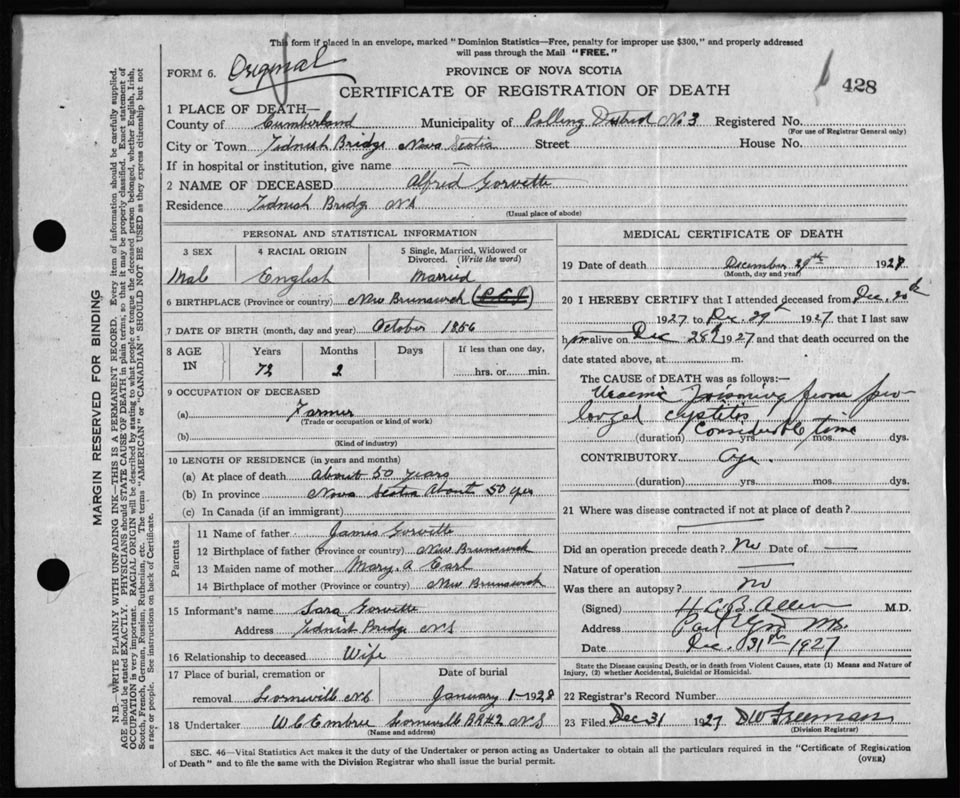 This form if placed in an envelope, marked "Dominion Statistics—Free, penalty for improper use $300," and properly addressed
will pass through the Mail "FREE."
FORM 6. Original
PROVINCE OF NOVA SCOTIA
CERTIFICATE OF REGISTRATION OF DEATH
428
1 PLACE OF DEATH—
County of Cumberland Municipality of Polling District No. 3 Registered No.
(For use of Registrar General only)
City or Town Tidnish Bridge Nova Scotia Street House No.
If in hospital or institution, give name —
2 NAME OF DECEASED Alfred Gorvette
Residence Tidnish Bridge NS
(Usual place of abode)
PERSONAL AND STATISTICAL INFORMATION
3 SEX 4 RACIAL ORIGIN 5 Single, Married, Widowed or
Divorced. (Write the word)
Male English Married
6 BIRTHPLACE (Province or country) New Brunswick (P.E.I)
7 DATE OF BIRTH (month, day and year) October 1856
8 AGE IN Years Months Days If less than one day,
72 2 hrs. or min.
9 OCCUPATION OF DECEASED
(a) Farmer
(Trade or occupation or kind of work)
(b)
(Kind of industry)
10 LENGTH OF RESIDENCE (in years and months)
(a) At place of death About 50 years
(b) In province Nova Scotia About 50 yrs
(c) In Canada (if an immigrant)
Parents
11 Name of father James Gorvette
12 Birthplace of father (Province or country) New Brunswick
13 Maiden name of mother Mary. A Earl
14 Birthplace of mother (Province or country) New Brunswick
15 Informant's name Sara Gorvette
Address Tidnish Bridge NS
16 Relationship to deceased Wife
17 Place of burial, cremation or Date of burial
removal Lorneville NS January 1—1928
18 Undertaker W.C. Embree Lorneville RR#2 NS
(Name and address)
MEDICAL CERTIFICATE OF DEATH
19 Date of death December 29th 1927
(Month, day and year)
20 I HEREBY CERTIFY that I attended deceased from Dec. 20th
1927 to Dec. 29th 1927 that I last saw
him alive on Dec 28th 1927 and that death occurred on the
date stated above, at m.
The CAUSE OF DEATH was as follows:—
Uraemic Poisoning from pro
longed cystitis
Considerable time
(duration) yrs. mos. dys.
CONTRIBUTORY Age.
(duration) yrs. mos. dys.
21 Where was disease contracted if not at place of death?
Did an operation precede death? No Date of —
Nature of operation —
Was there an autopsy? no
(Signed) H.C.B. Allen M.D.
Address Port Elgin NB.
Date Dec. 31st 1927
State the Disease causing Death, or in death from Violent Causes, state (1) Means and Nature of
Injury, (2) whether Accidental, Suicidal or Homicidal.
22 Registrar's Record Number
23 Filed Dec 31 1927 D W Freeman
(Division Registrar)
SEC. 46—Vital Statistics Act makes it the duty of the Undertaker or person acting as Undertaker to obtain all the particulars required in the "Certificate of Registration
of Death" and to file the same with the Division Registrar who shall issue the burial permit. (OVER)
MARGIN RESERVED FOR BINDING
N.B.—WRITE PLAINLY WITH UNFADING INK—THIS IS A PERMANENT RECORD. Every item of information should be carefully supplied.
AGE should be stated EXACTLY. PHYSICIANS should STATE CAUSE OF DEATH in plain terms, so that it may be properly classified. Exact statement of
OCCUPATION is very important. RACIAL ORIGIN will be described by stating to what people or tongue the deceased person belonged, whether English, Irish,
Scotch, French, German, Russian, Ruthenian, etc. The terms "AMERICAN" or "CANADIAN" SHOULD NOT BE USED as they express citizenship but not
a race or people. See instructions on back of Certificate.